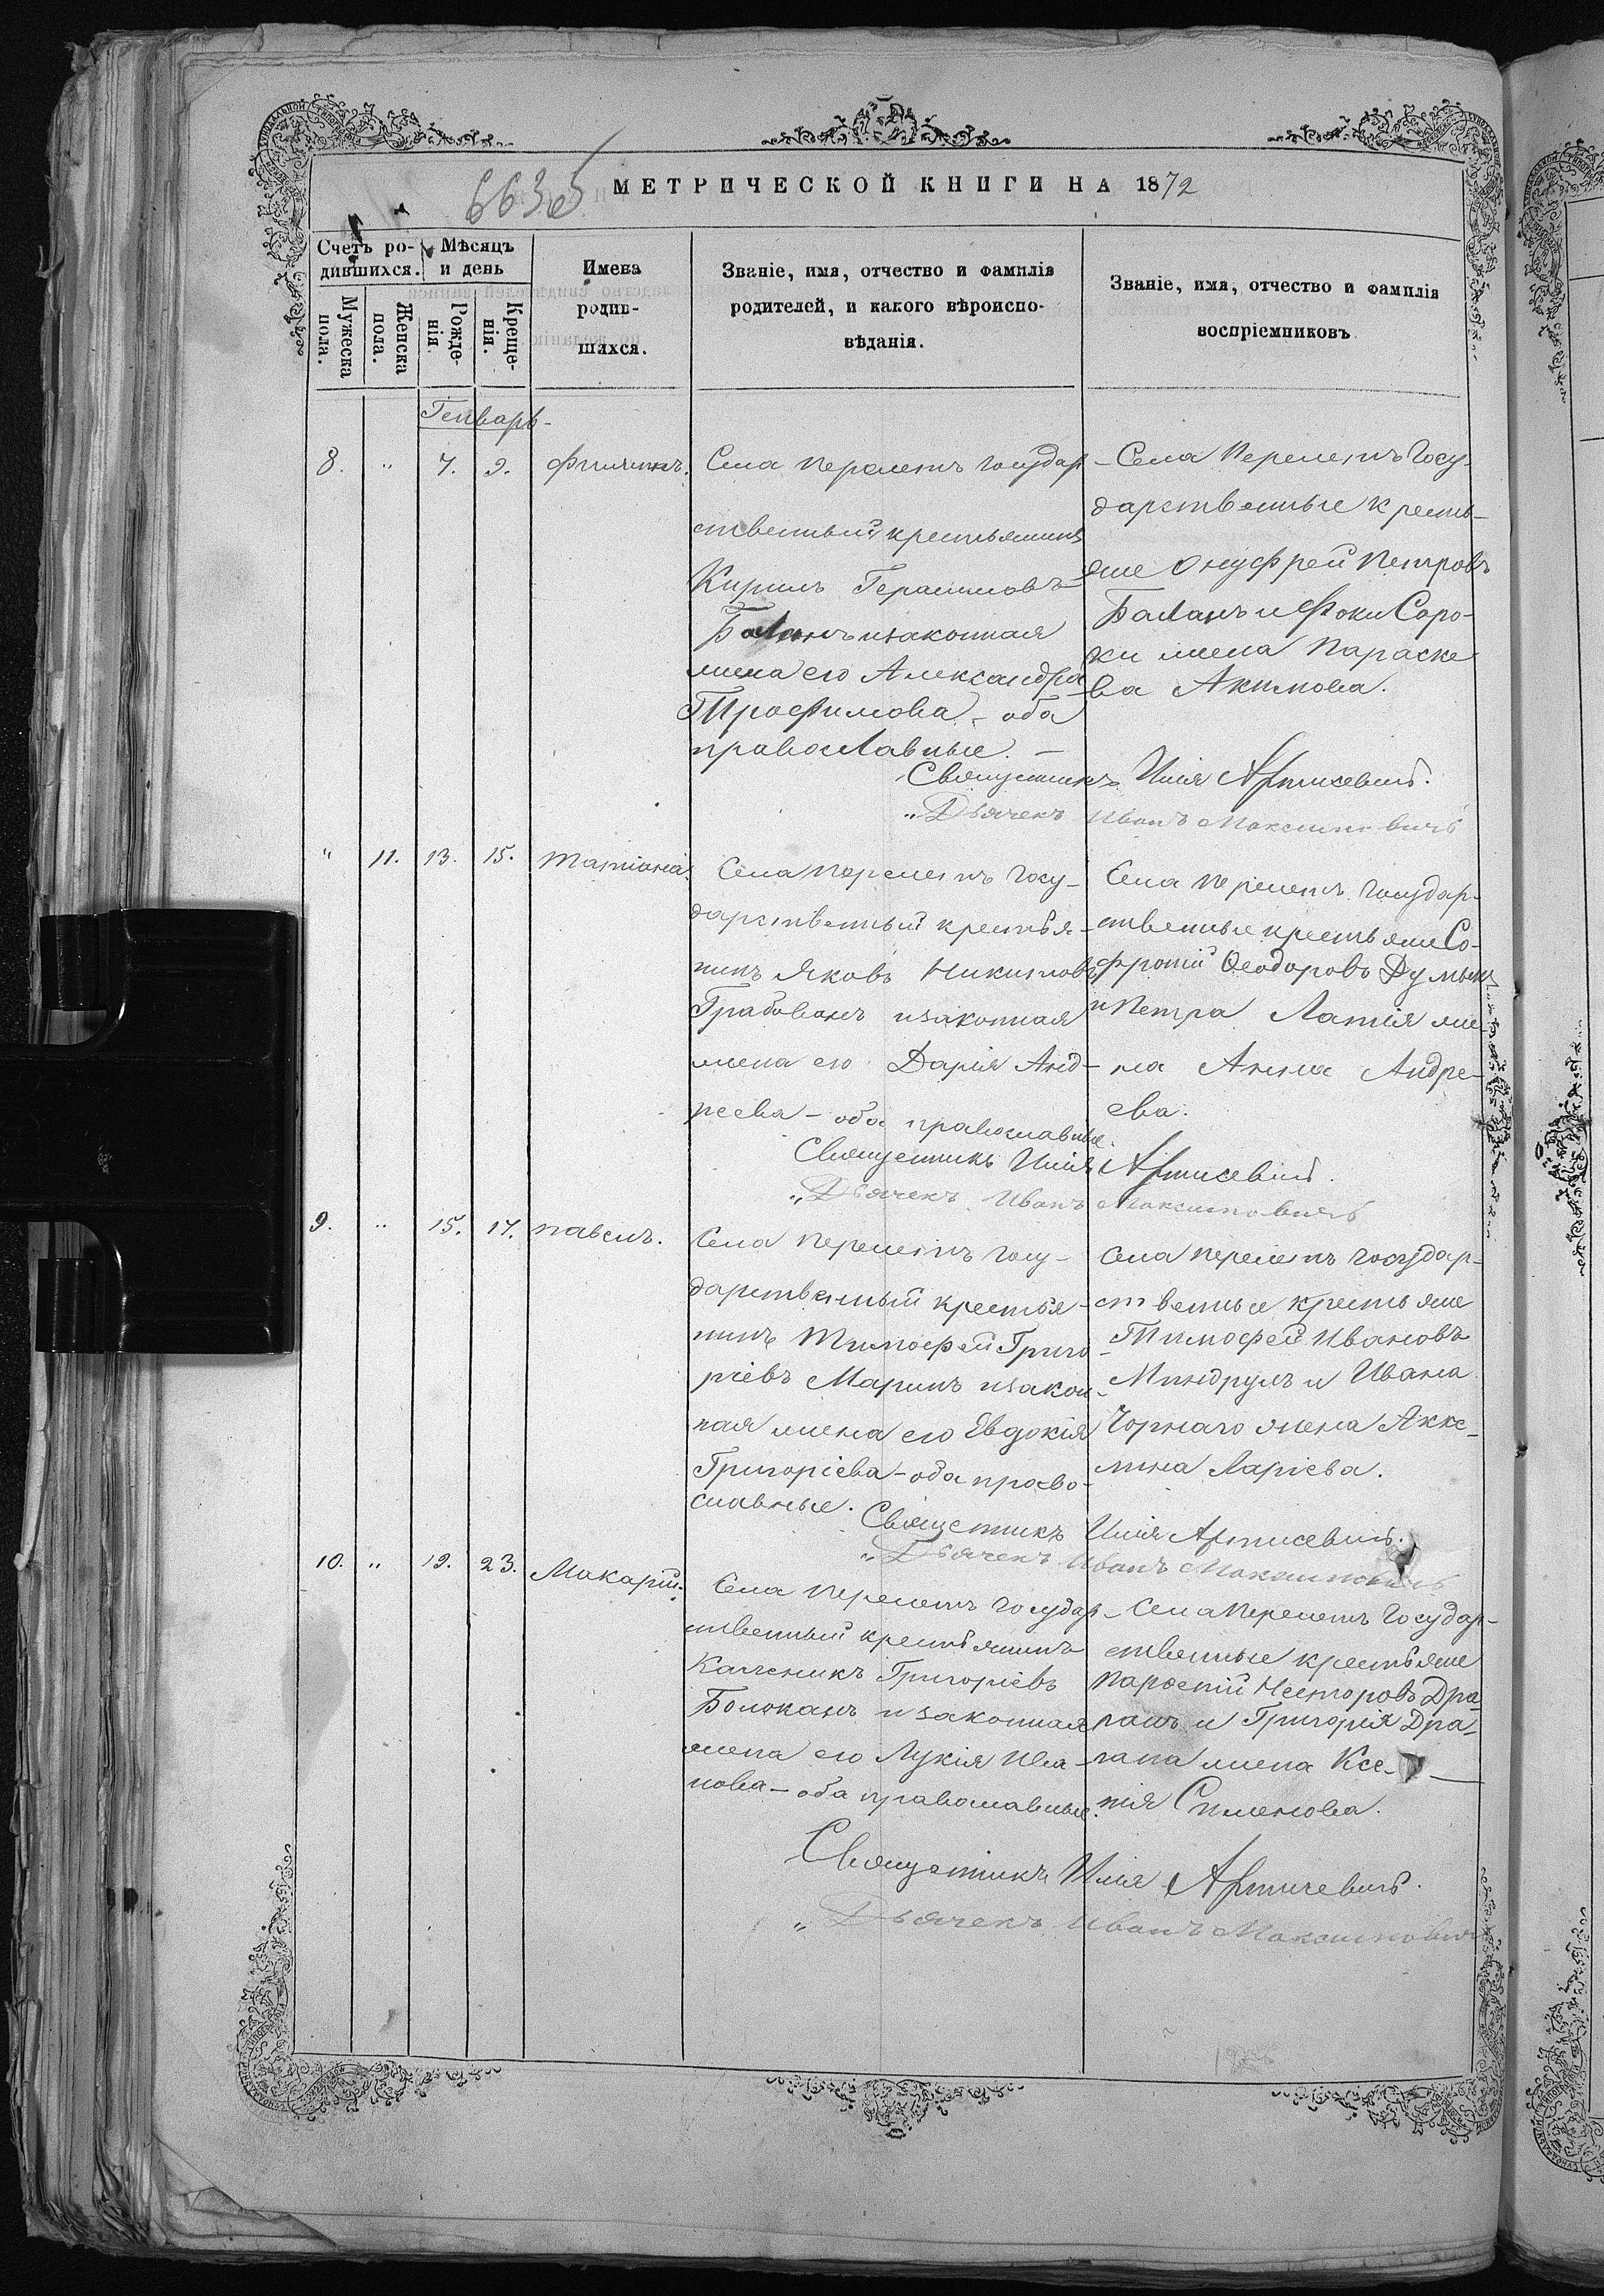 МЕТРИЧЕСКОЙ КНИГИ НА 1872
Счетъ ро-
дившихся.
Мѣсяцъ
и день
Имена
родив-
шихся.
Званіе, имя, отчество и фамилія
родителей, и какого вѣроиспо-
вѣданія.
Званіе, имя, отчество и фамилія
воспріемниковъ.
Мужеска
пола.
Женска
пола.
Рожде-
нія.
Креще-
нія.
Генварь-
8. " 7. 9. Филипъ.
Села Перелетъ Государ-
ственный крестьянинъ
Кирилъ Герасимовъ
Баланъ и законная
жена его Александра
Трофимова - оба
православные. -
Села Перелетъ Госу-
дарственные кресть-
яне Онуфрей Петровъ
Баланъ и Фоки Соро-
ки жена Параске
ва Акимова.
Священникъ Илія Артисевичъ.
"Дьячекъ Иванъ Максимовичъ
" 11. 13. 15. Татіана.
Села Перелетъ Госу-
дарственный крестья-
нинъ Яковъ Никитовъ
Грабованъ и законная
жена его Дарія Анд-
реева - оба православные.
Села Перелетъ Государ-
ственные крестьяне Со-
фроній Ѳеодоровъ
и Петра Латія же-
на Анна Андре-
ева.
Священникъ Илія Артисевичъ.
"Дьячекъ Иванъ Максимовичъ
9. " 15. 17. Павелъ.
Села Перелетъ Госу-
дарственный крестья-
нинъ Тимофей Григо
ріевъ Маринъ и закон-
ная жена его Евдокія
Григоріева - оба право-
славные.
Села Перелетъ Государ-
ственные крестьяне
Тимофей Ивановъ
Миндруль и Ивана
Чорнаго жена Аксе-
нина Ларіева.
Священникъ Илія Артисевичъ.
"Дьячекъ Иванъ Максимовичъ
10. " 19. 23. Макарій.
Села Перелетъ Государ-
ственный крестьянинъ
Каленикъ Григоріевъ
Болоканъ и законная
жена его Лукія Ива-
нова - оба православные.
Села Перелетъ Государ-
ственные крестьяне
Несторовъ Дра-
ганъ и Григорія Дра-
гана жена Ксе-
нія Сименова.
Священникъ Илія Артисевичъ.
"Дьячекъ Иванъ Максимовичъ